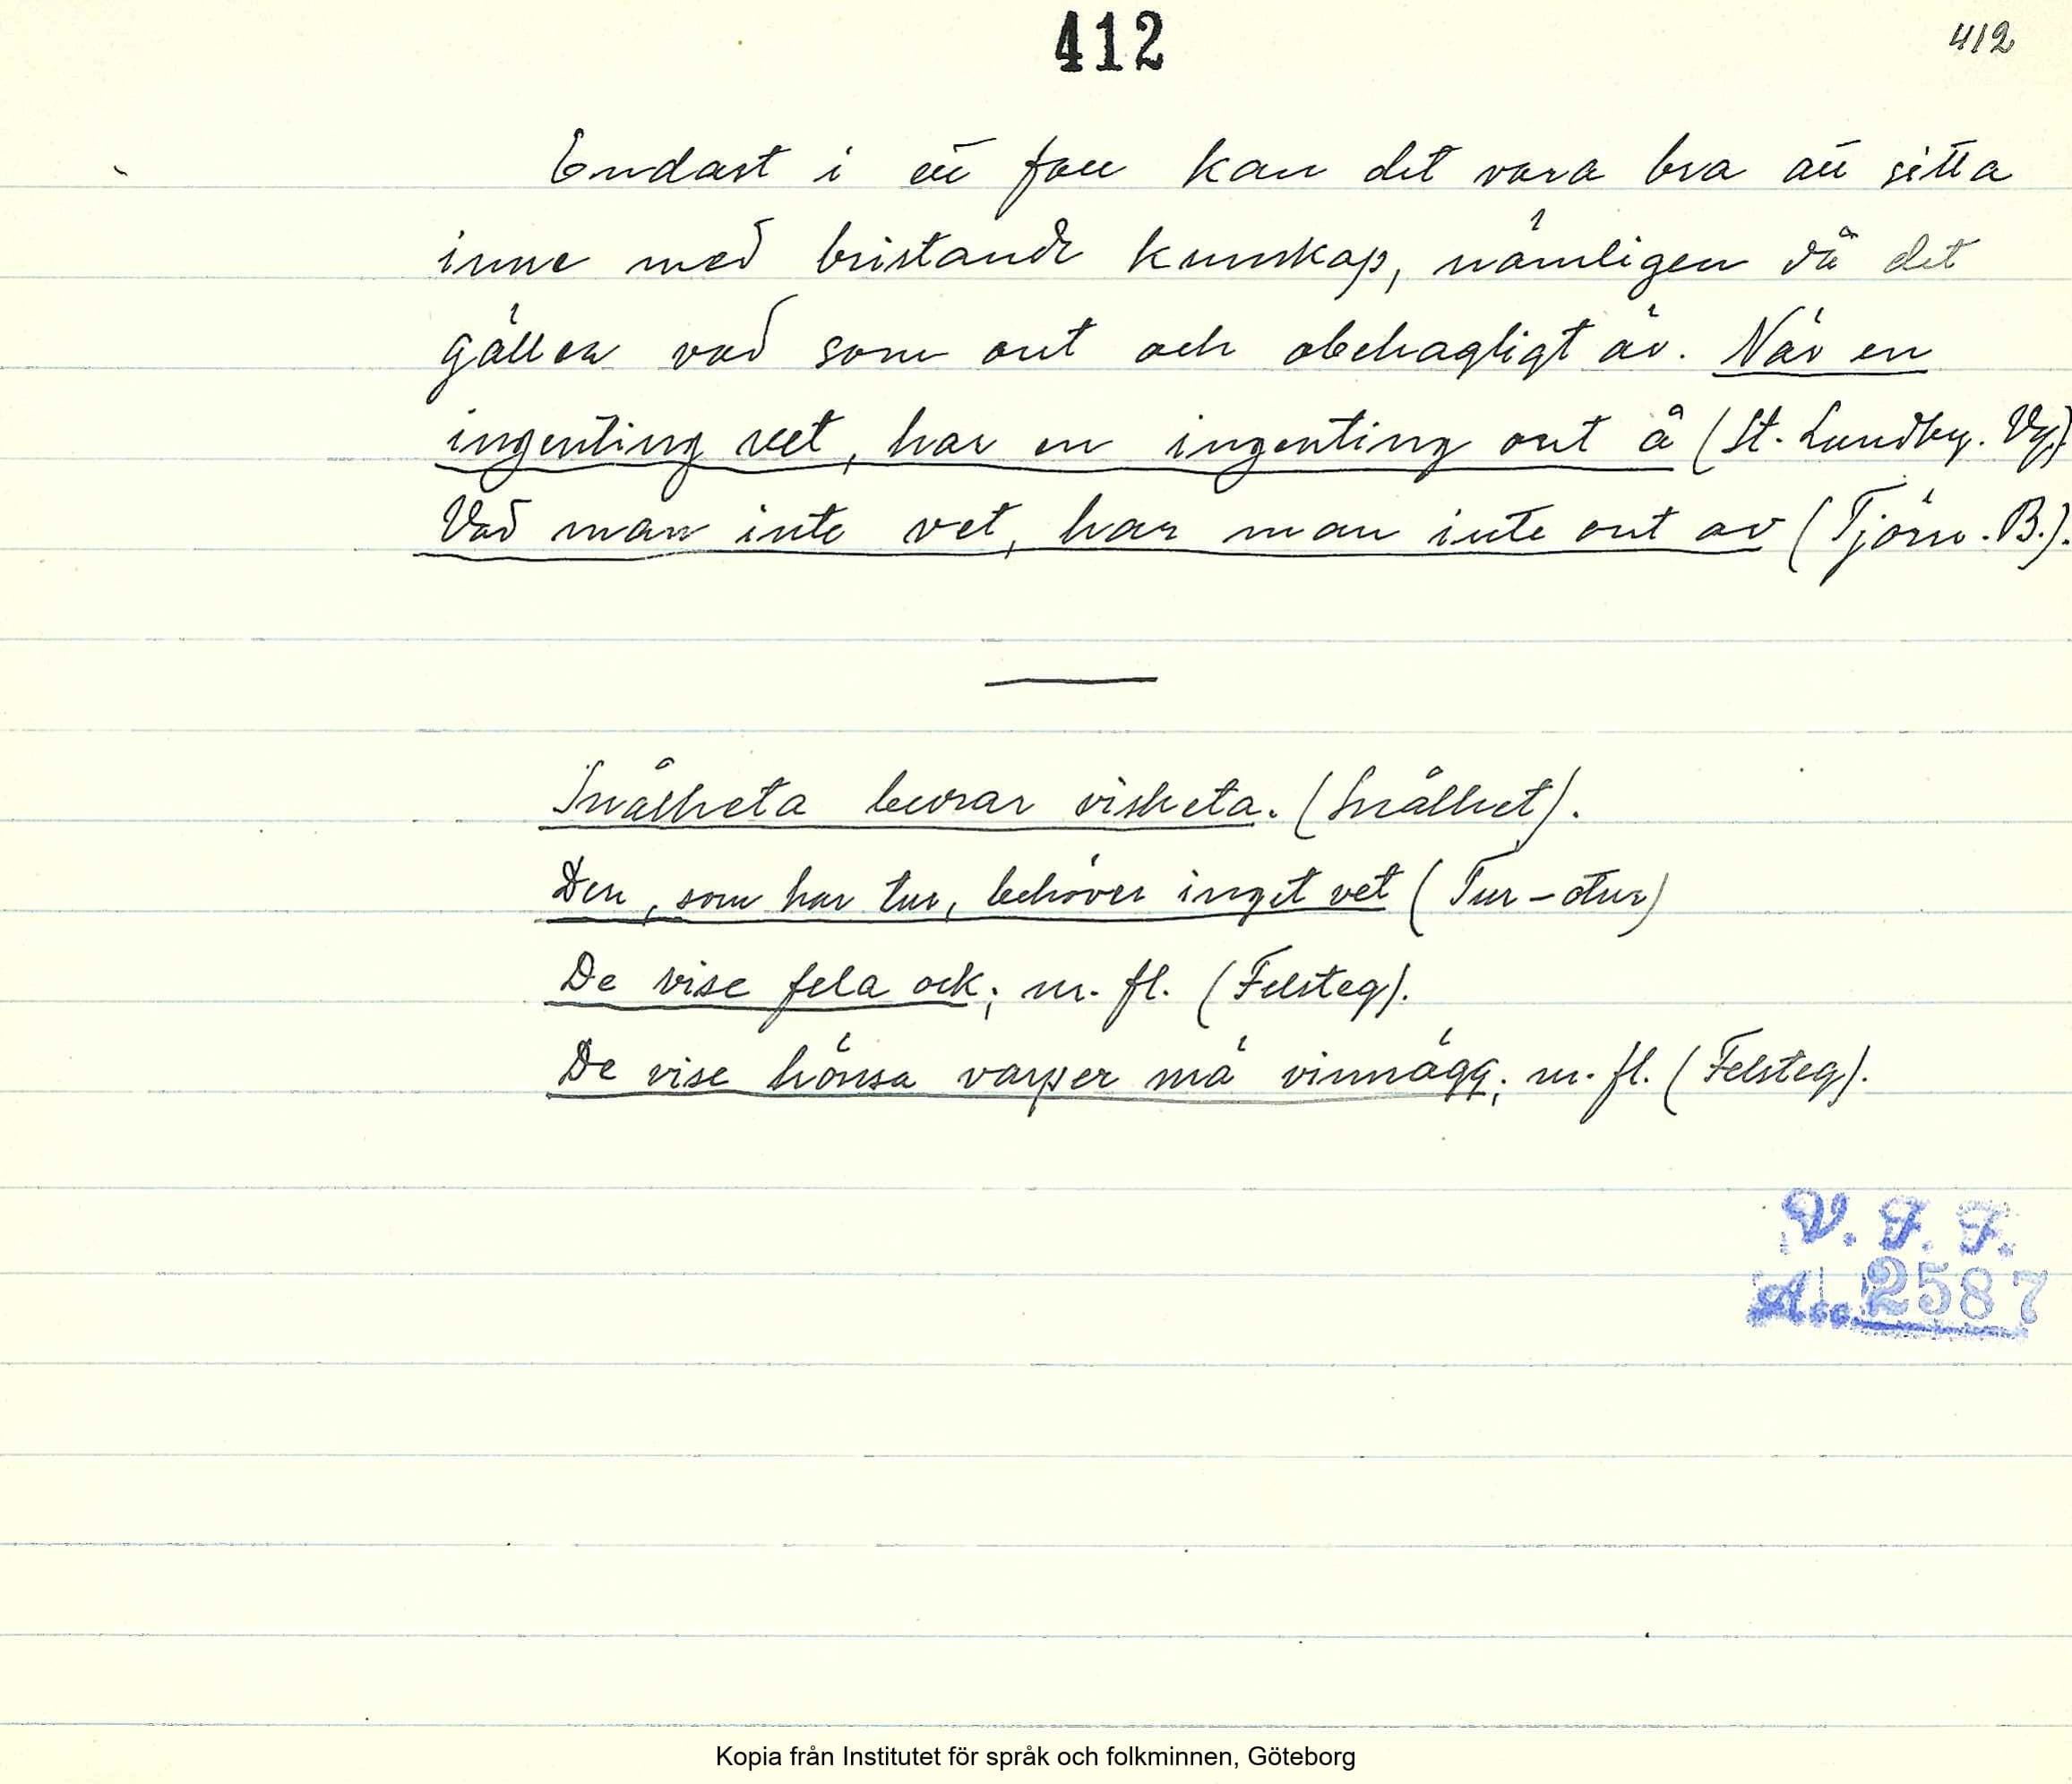 412
412
Endast i ett fall kan det vara bra att sitta
inne med bristande kunskap, nämligen då det
gäller vad som ont och obehagligt är. När en
ingenting vet, har en ingenting ont å (St. Lundby. Vg.)
Vad man inte vet, har man inte ont av (Tjörn. B.).
Snålheta beurar visheta. (Snålhet).
Den, som har tur, behöver inget vet (Tur – otur)
De vise fela ock; m. fl. (Felsteg).
De vise hönsa varper mä vinnägg; m. fl. (Felsteg).
V. F. F.
Acc. 2587
Kopia från Institutet för språk och folkminnen, Göteborg